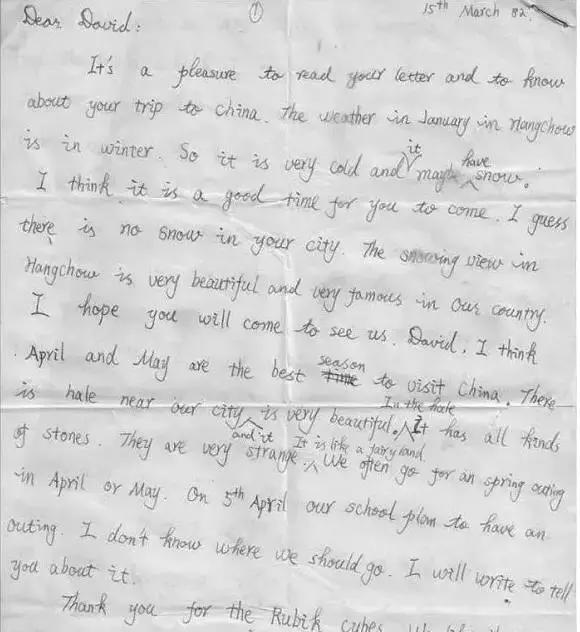 ①
15th March 82.
Dear David:
It's a pleasure to read your letter and to know
about your trip to China. The weather in January in Hangchow
is in winter. So it is very cold and it maybe have snow.
I think it is a good time for you to come. I guess
there is no snow in your city. The snowing view in
Hangchow is very beautiful and very famous in our country.
I hope you will come to see us. David, I think
April and May are the best season to visit China. There
is hale near our city and it is very beautiful. In the hale It has all kinds
of stones. They are very strange. It is like a fairy land. We often go for an spring outing
in April or May. On 5th April our school plan to have an
outing. I don't know where we should go. I will write to tell
you about it.
Thank you for the Rubik cubes.